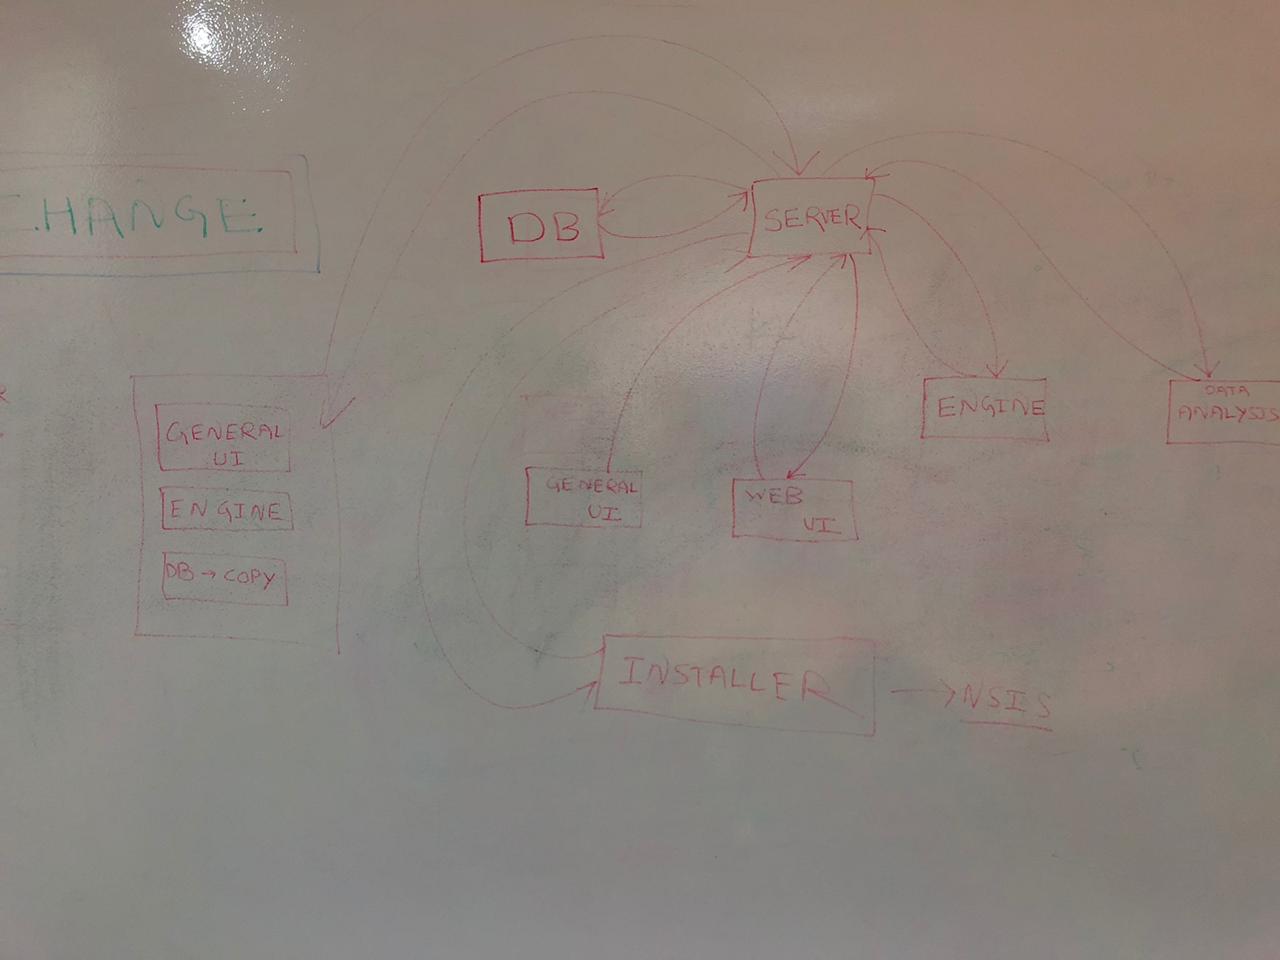 CHANGE
DB
SERVER
GENERAL
UI
ENGINE
DB → COPY
GENERAL
UI
WEB
UI
ENGINE
DATA
ANALYSIS
INSTALLER → NSIS